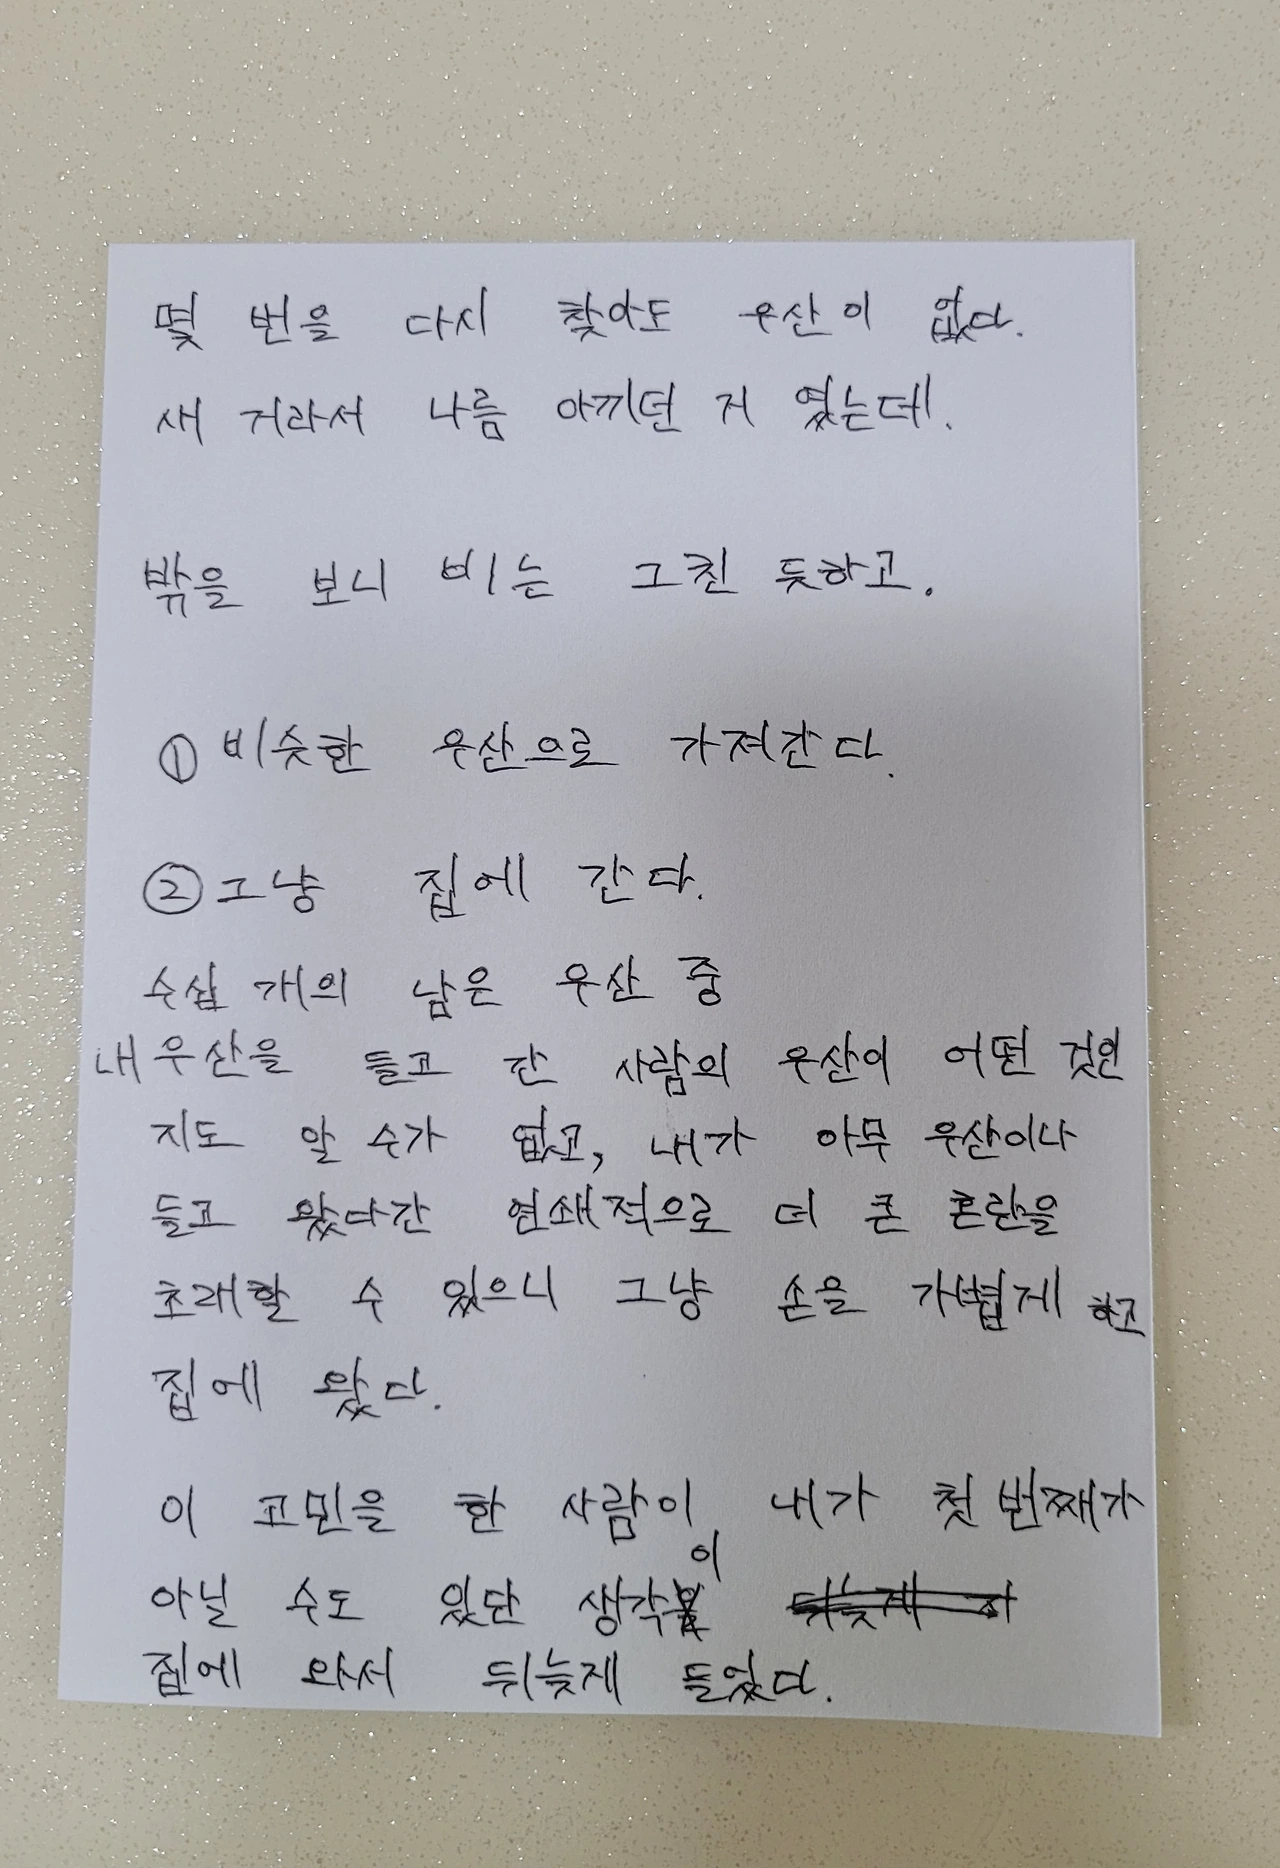 몇 번을 다시 찾아도 우산이 없다.
새 거라서 나름 아끼던 거 였는데.
밖을 보니 비는 그친 듯하고.
① 비슷한 우산으로 가져간다.
② 그냥 집에 간다.
수십 개의 남은 우산 중
내 우산을 들고 간 사람의 우산이 어떤 것인
지도 알 수가 없고, 내가 아무 우산이나
들고 왔다간 연쇄적으로 더 큰 혼란을
초래할 수 있으니 그냥 손을 가볍게 하고
집에 왔다.
이 고민을 한 사람이 내가 첫 번째가
아닐 수도 있단 생각이
집에 와서 뒤늦게 들었다.